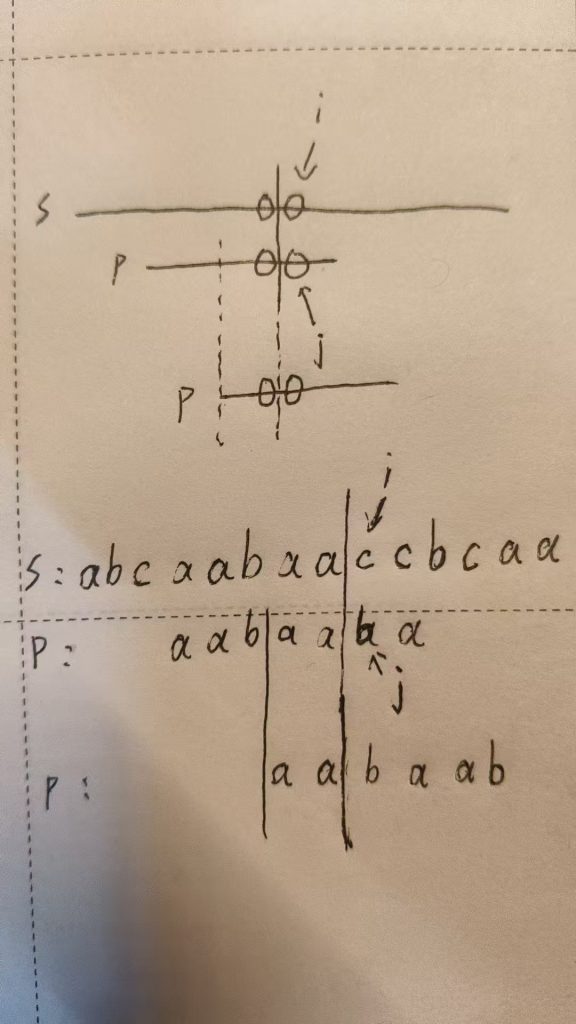 i
S
P
j
P
i
S: abcaabaaccbcaa
P: aabaa a
j
P: aabaab